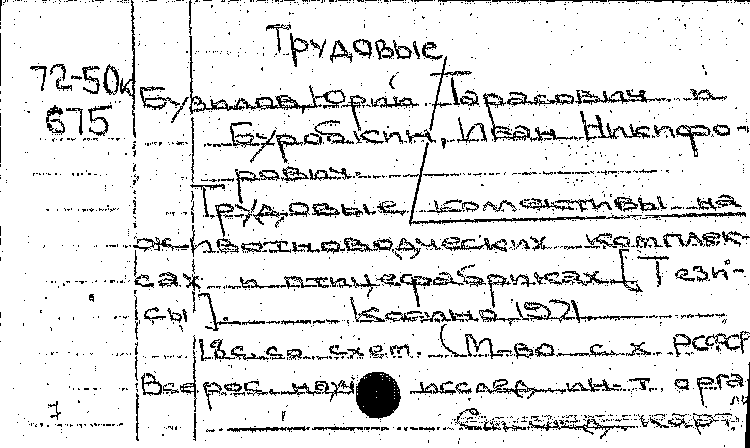 Трудовые
72-50к
675
Бузилов, Юрий Тарасович и
Буробкин, Иван Никифо-
рович.
Трудовые коллективы на
животноводческих комплек-
сах и птицефабриках [Тези-
сы]. 1971.
18с. со схем. (М-во с. х РСФСР
Всерос. науч исслед. ин-т. орга
См. след. карт.